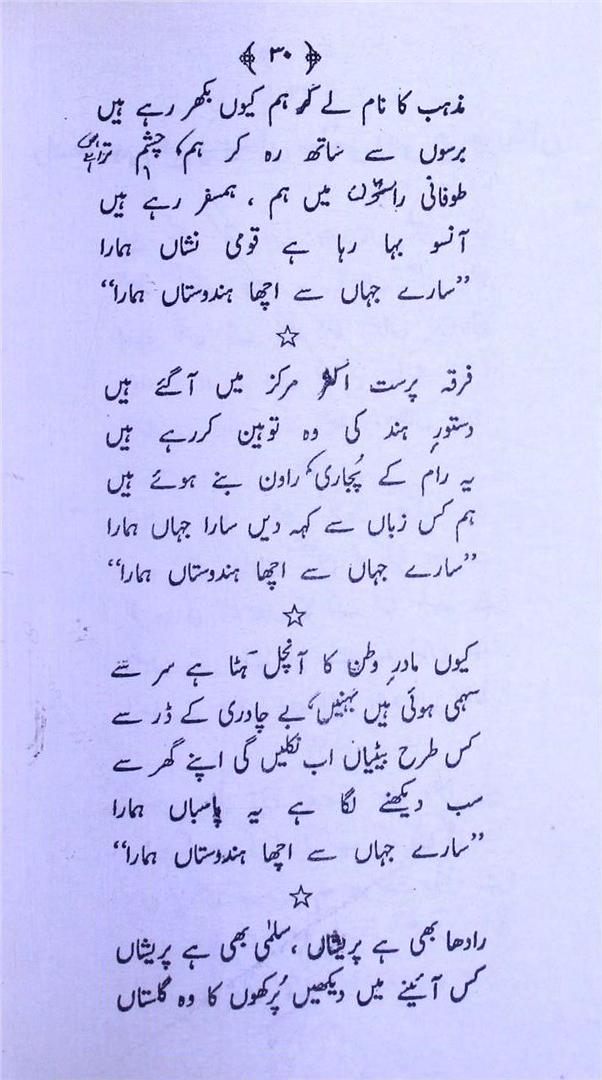 ﴿ ۳۰ ﴾
مذہب کا نام لے کر ہم کیوں بکھر رہے ہیں
برسوں سے ساتھ رہ کر ہم، چشم
طوفانی راستوں میں ہم ، ہمسفر رہے ہیں
آنسو بہا رہا ہے قومی نشاں ہمارا
”سارے جہاں سے اچھا ہندوستاں ہمارا“
☆
فرقہ پرست اکثر مرکز میں آگئے ہیں
دستورِ ہند کی وہ توہین کررہے ہیں
یہ رام کے پُجاری، راون بنے ہوئے ہیں
ہم کس زباں سے کہہ دیں سارا جہاں ہمارا
”سارے جہاں سے اچھا ہندوستاں ہمارا“
☆
کیوں مادرِ وطن کا آنچل ہٹا ہے سر سے
سہمی ہوئی ہیں بہنیں، بے چادری کے ڈر سے
کس طرح بیٹیاں اب نکلیں گی اپنے گھر سے
سب دیکھنے لگا ہے یہ پاسباں ہمارا
”سارے جہاں سے اچھا ہندوستاں ہمارا“
☆
رادھا بھی ہے پریشاں ، سلمٰی بھی ہے پریشاں
کس آئینے میں دیکھیں پُرکھوں کا وہ گلستاں